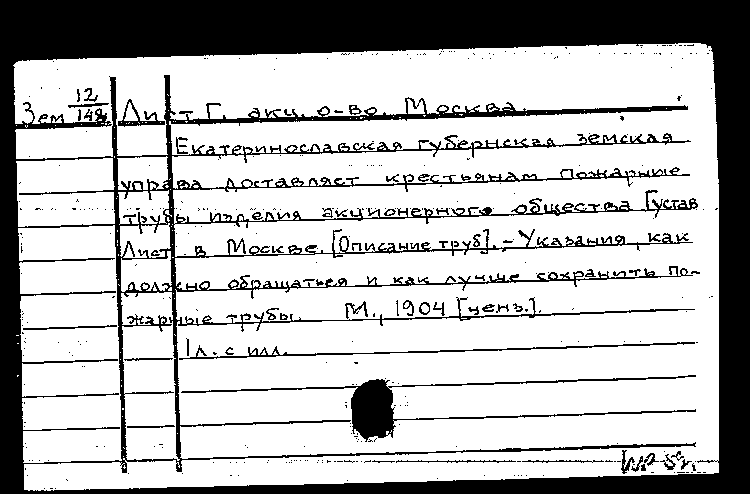 Зем 12/149 Лист Г. акц. о-во. Москва.
Екатеринославская губернская земская
управа доставляет крестьянам пожарные
трубы изделия акционерного общества Густав
Лист в Москве. [Описание труб]. - Указания, как
должно обращаться и как лучше сохранить по-
жарные трубы. М., 1904 [ценз.].
1 л. с илл.